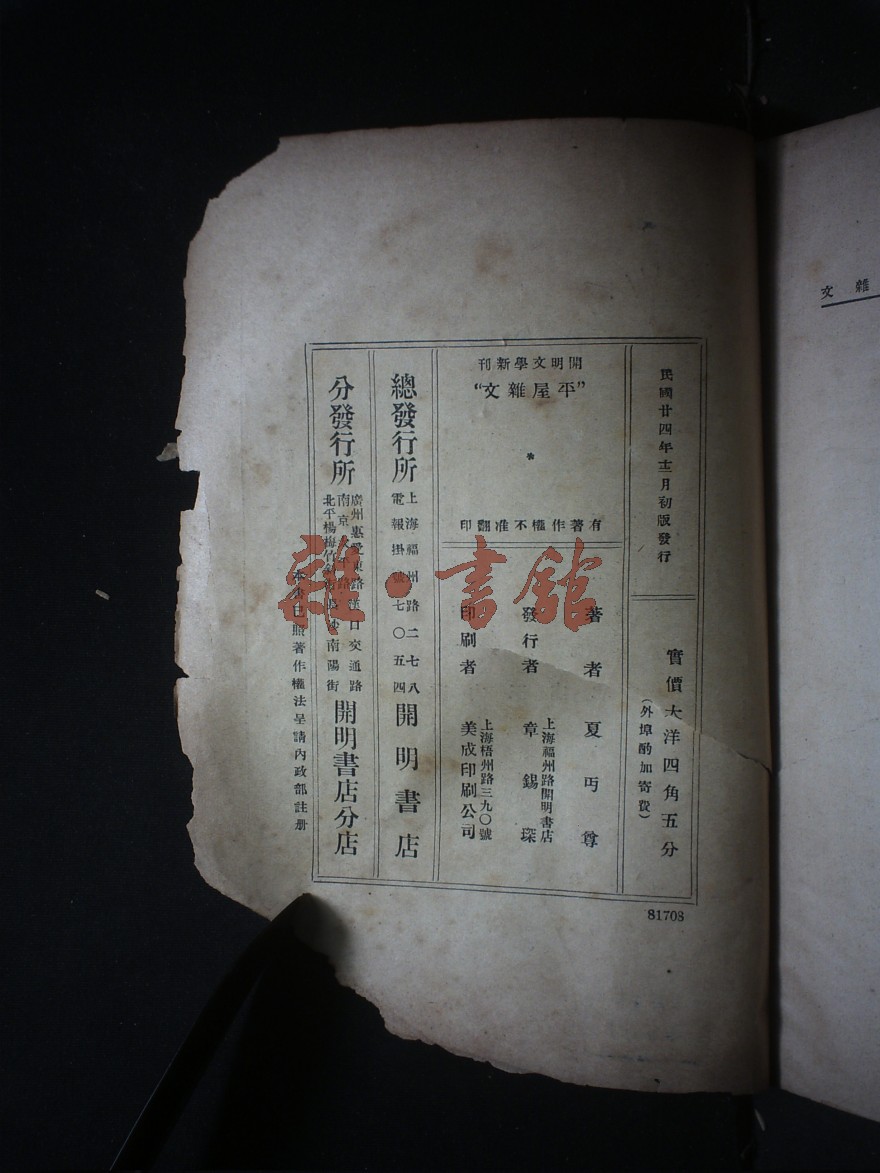 民國廿四年十二月初版發行
實價大洋四角五分
(外埠酌加寄費)
開明文學新刊
"平屋雜文"
有著作權不准翻印
著者 夏丏尊
發行者 章錫琛
上海福州路開明書店
印刷者 美成印刷公司
上海梧州路三九〇號
總發行所 開明書店
上海福州路二七八
電報掛號七〇五四
分發行所 開明書店分店
廣州惠愛東路漢口交通路
南京太平路長沙南陽街
北平楊梅竹斜街
本書已照著作權法呈請內政部註册
81708
雜文
雜·書館